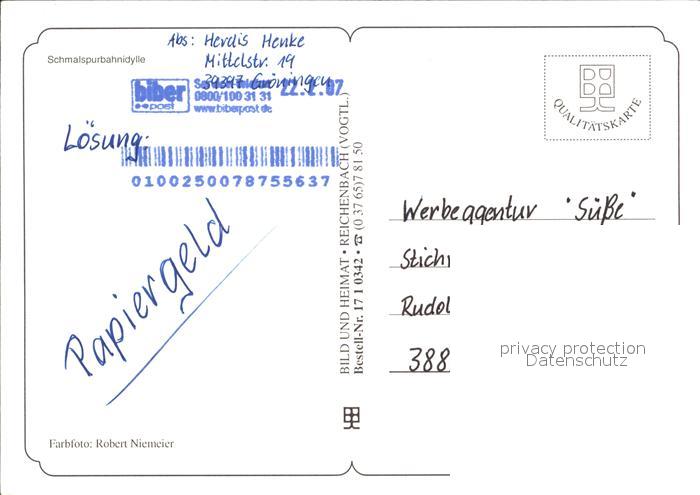 Abs: Herdis Henke
Mittelstr. 19
39397 Gröningen
Schmalspurbahnidylle
biber post
0800/100 31 31
www.biberpost.de
22.2.07
Lösung:
0100250078755637
Papiergeld
BILD UND HEIMAT • REICHENBACH (VOGTL.)
Bestell-Nr. 17 1 0342 • ☎ (0 37 65) 7 81 50
QUALITÄTSKARTE
Werbeagentur "Süße"
Stich
Rudol
388
privacy protection
Datenschutz
Farbfoto: Robert Niemeier